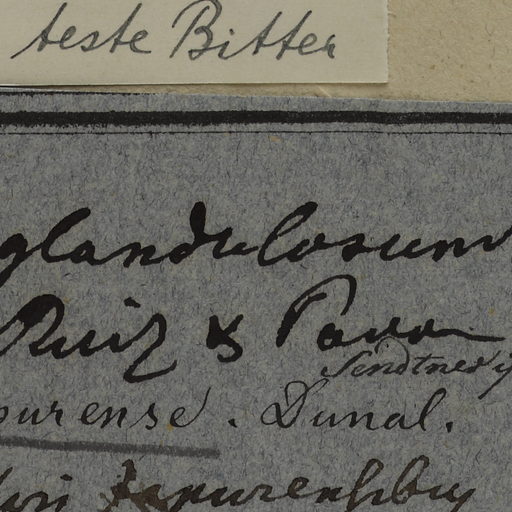 teste Bitter
glandulosum
Ruiz & Pavon
Sendtneri
purense. Dunal.